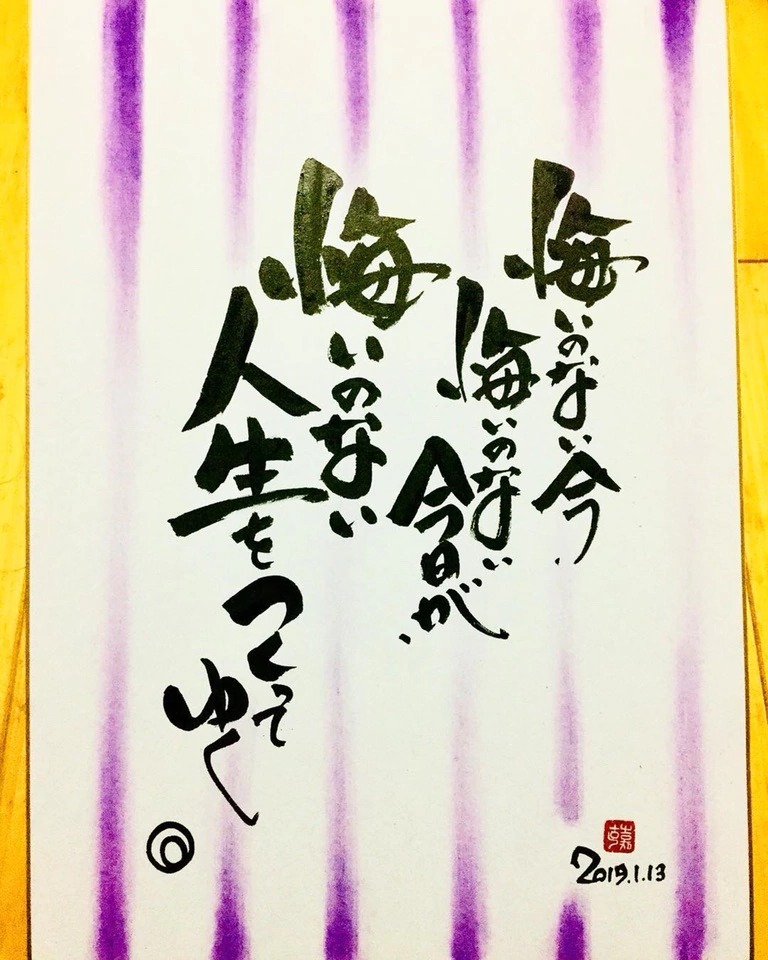 悔いのない今、
悔いのない
今日が、
悔いのない
人生を
つくって
ゆく
2019.1.13